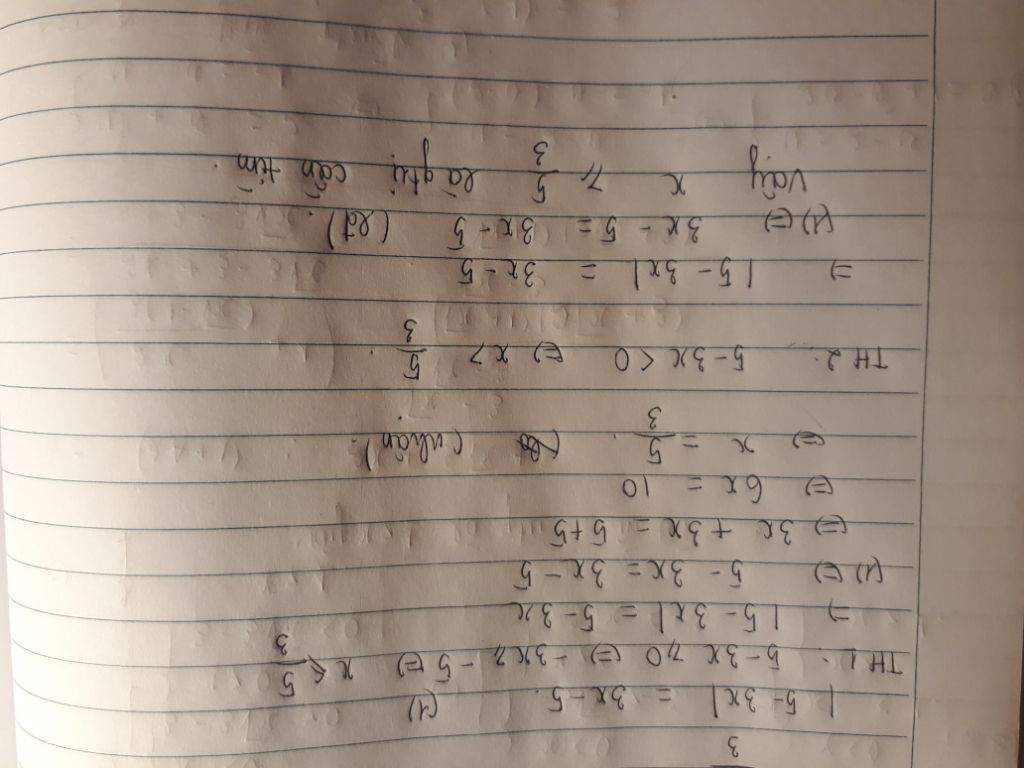 3
|5-3x| = 3x-5. (1)
TH1: 5-3x ⩾ 0 (=) -3x ⩾ -5 (=) x ⩽ 5/3
=) |5-3x| = 5-3x
(1) (=) 5-3x = 3x-5
(=) 3x+3x = 5+5
(=) 6x = 10
(=) x = 5/3. (nhận).
TH2: 5-3x < 0 (=) x > 5/3.
=) |5-3x| = 3x-5
(1) (=) 3x-5 = 3x-5 (lđ).
Vậy x ⩾ 5/3 là gtrị cần tìm.